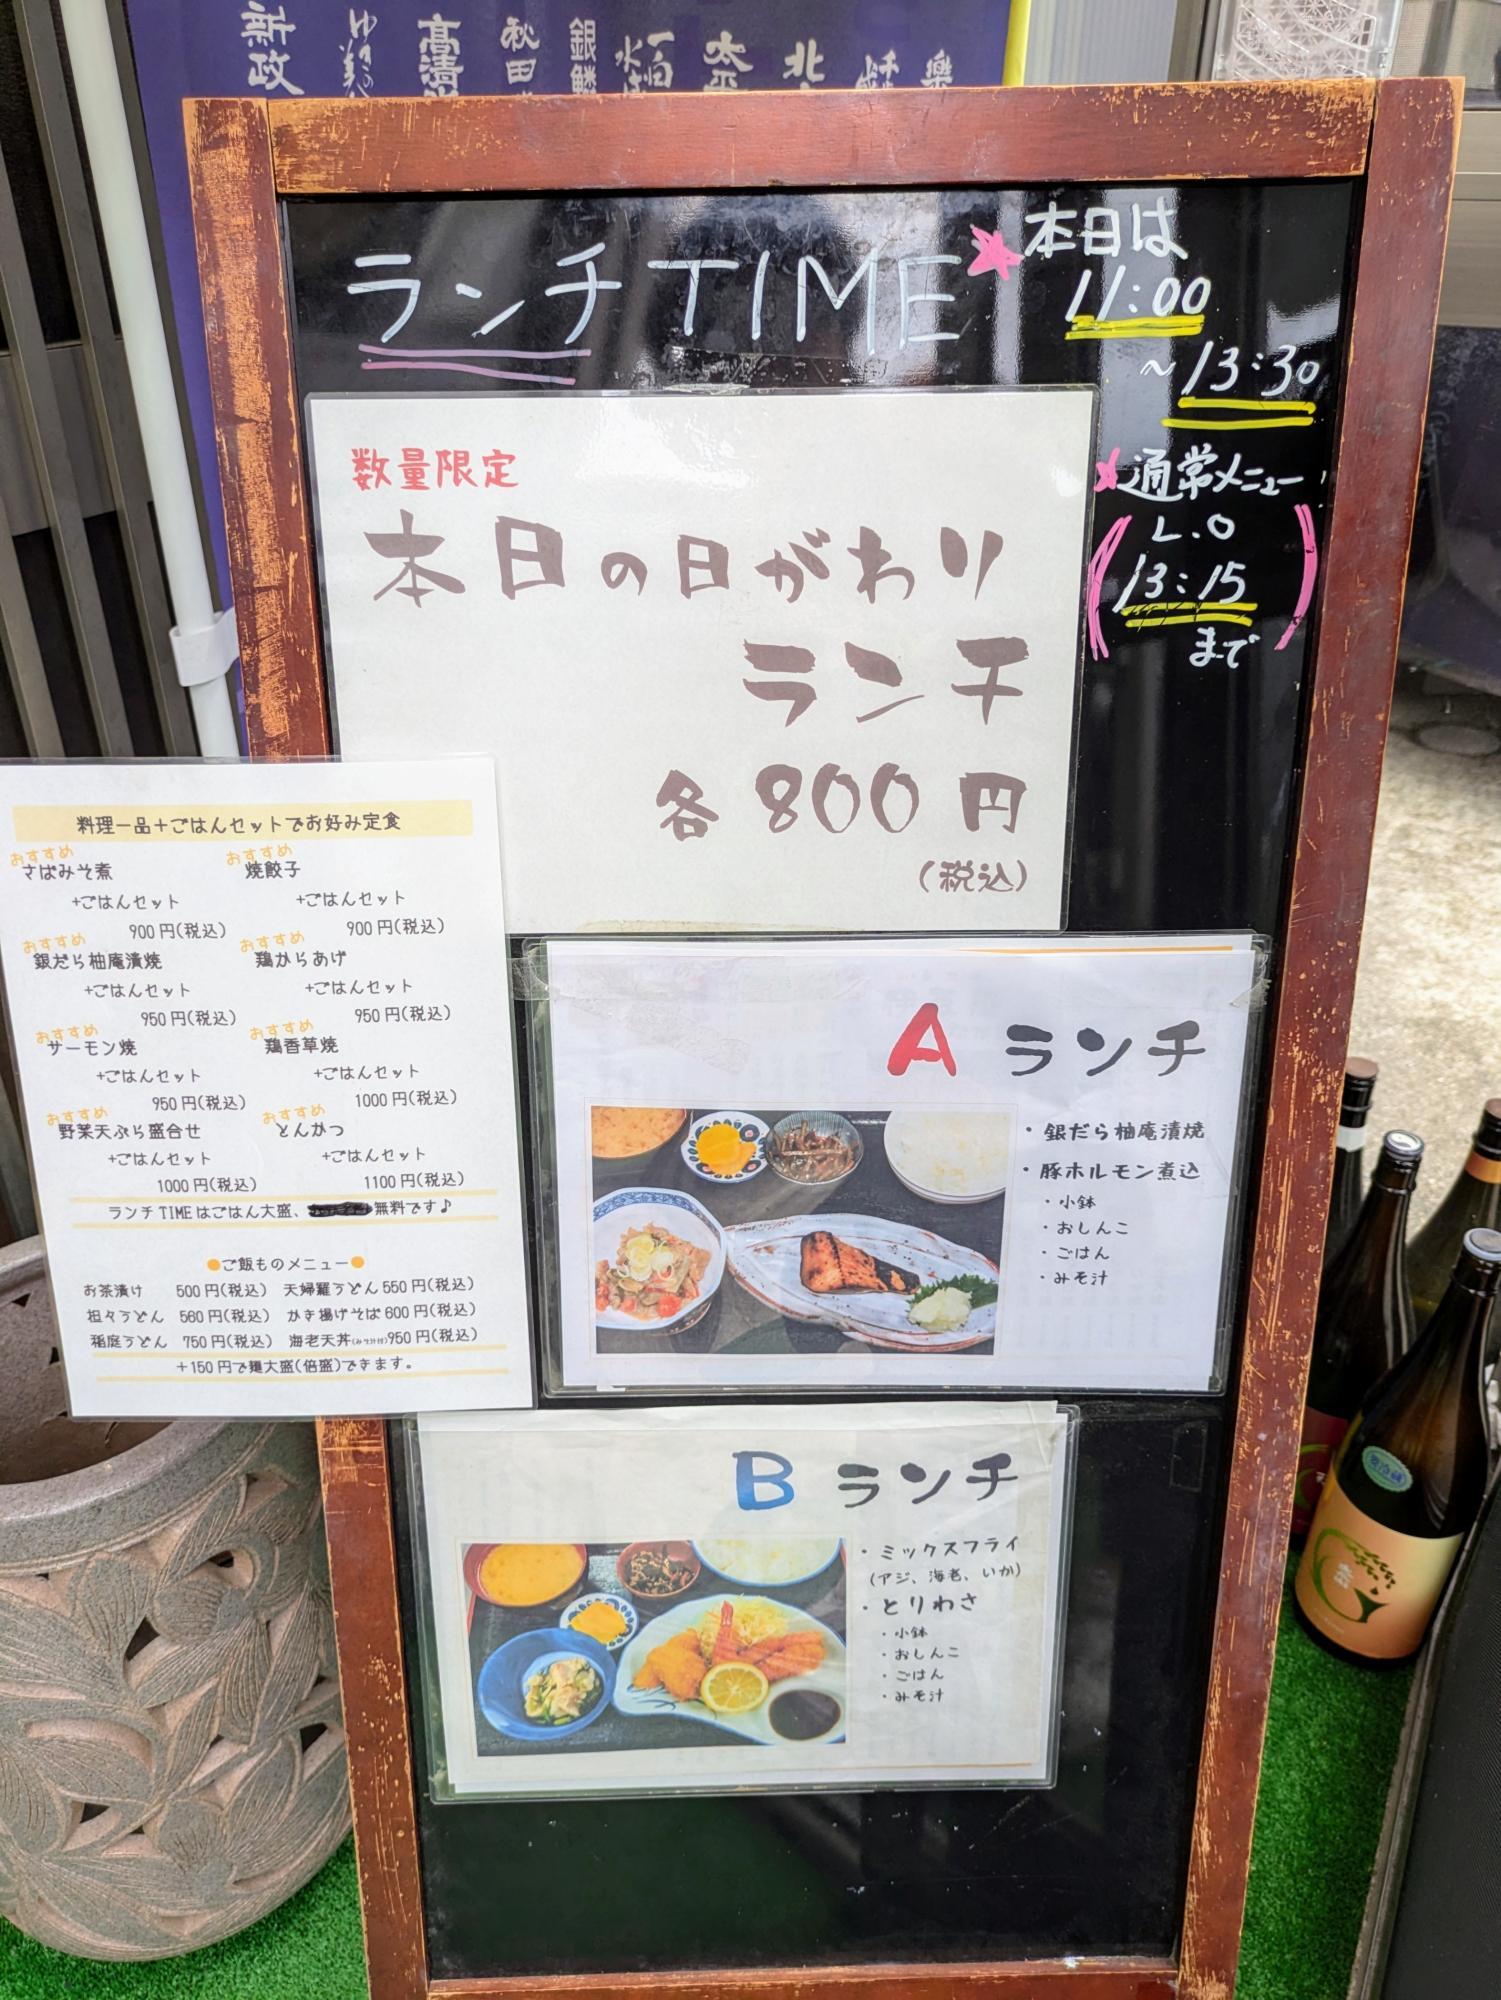 新政
高清水
秋田
銀鱗
一白水成
太平
北
千歳
樂
ランチTIME
本日は
11:00
~13:30
通常メニュー
L.O
13:15
まで
数量限定
本日の日がわり
ランチ
各800円
(税込)
料理一品+ごはんセットでお好み定食
おすすめ おすすめ
さばみそ煮 焼餃子
+ごはんセット +ごはんセット
900円(税込) 900円(税込)
おすすめ おすすめ
銀だら柚庵漬焼 鶏からあげ
+ごはんセット +ごはんセット
950円(税込) 950円(税込)
おすすめ おすすめ
サーモン焼 鶏香草焼
+ごはんセット +ごはんセット
950円(税込) 1000円(税込)
おすすめ おすすめ
野菜天ぷら盛合せ とんかつ
+ごはんセット +ごはんセット
1000円(税込) 1100円(税込)
ランチTIMEはごはん大盛、無料です♪
●ご飯ものメニュー●
お茶漬け 500円(税込) 天婦羅うどん 550円(税込)
担々うどん 560円(税込) かき揚げそば 600円(税込)
稲庭うどん 750円(税込) 海老天丼(みそ汁付)950円(税込)
+150円で麺大盛(倍盛)できます。
A ランチ
・銀だら柚庵漬焼
・豚ホルモン煮込
・小鉢
・おしんこ
・ごはん
・みそ汁
B ランチ
・ミックスフライ
(アジ、海老、いか)
・とりわさ
・小鉢
・おしんこ
・ごはん
・みそ汁